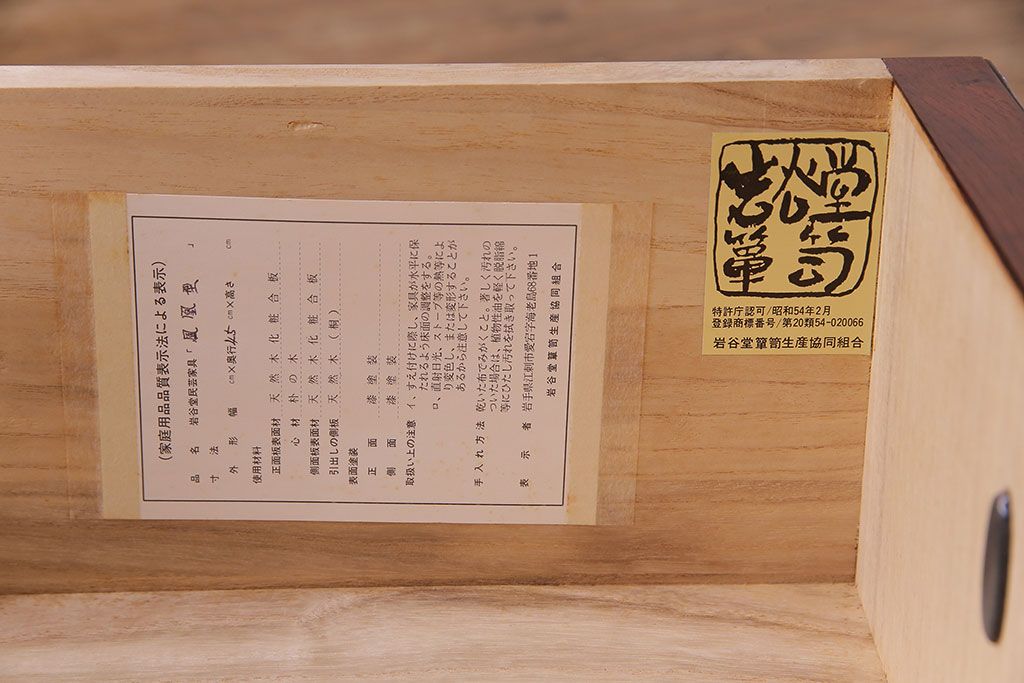 (家庭用品品質表示法による表示)
品名 岩谷堂民芸家具「鳳凰
寸法
外形 幅 cm×奥行 cm×高さ cm
使用材料
正面板表面材 天然木化粧合板
心材 朴の木
側面板表面材 天然木化粧合板
引出しの側板 天然木(桐)
表面塗装
正面 漆塗装
側面 漆塗装
取扱い上の注意 イ、すえ付けに際し、家具が水平に保
たれるよう床面の調整をする。
ロ、直射日光、ストーブ等の熱等によ
り変色し、または変形することが
あるから注意して下さい。
手入れ方法 乾いた布でみがくこと。著しく汚れの
ついた場合は、植物性油を軽く脱脂綿
等にひたし汚れを拭き取って下さい。
表示者 岩手県江刺市愛宕字海老島68番地1
岩谷堂箪笥生産協同組合
岩谷堂
箪笥
特許庁認可/昭和54年2月
登録商標番号/第20類54-020066
岩谷堂簞笥生産協同組合